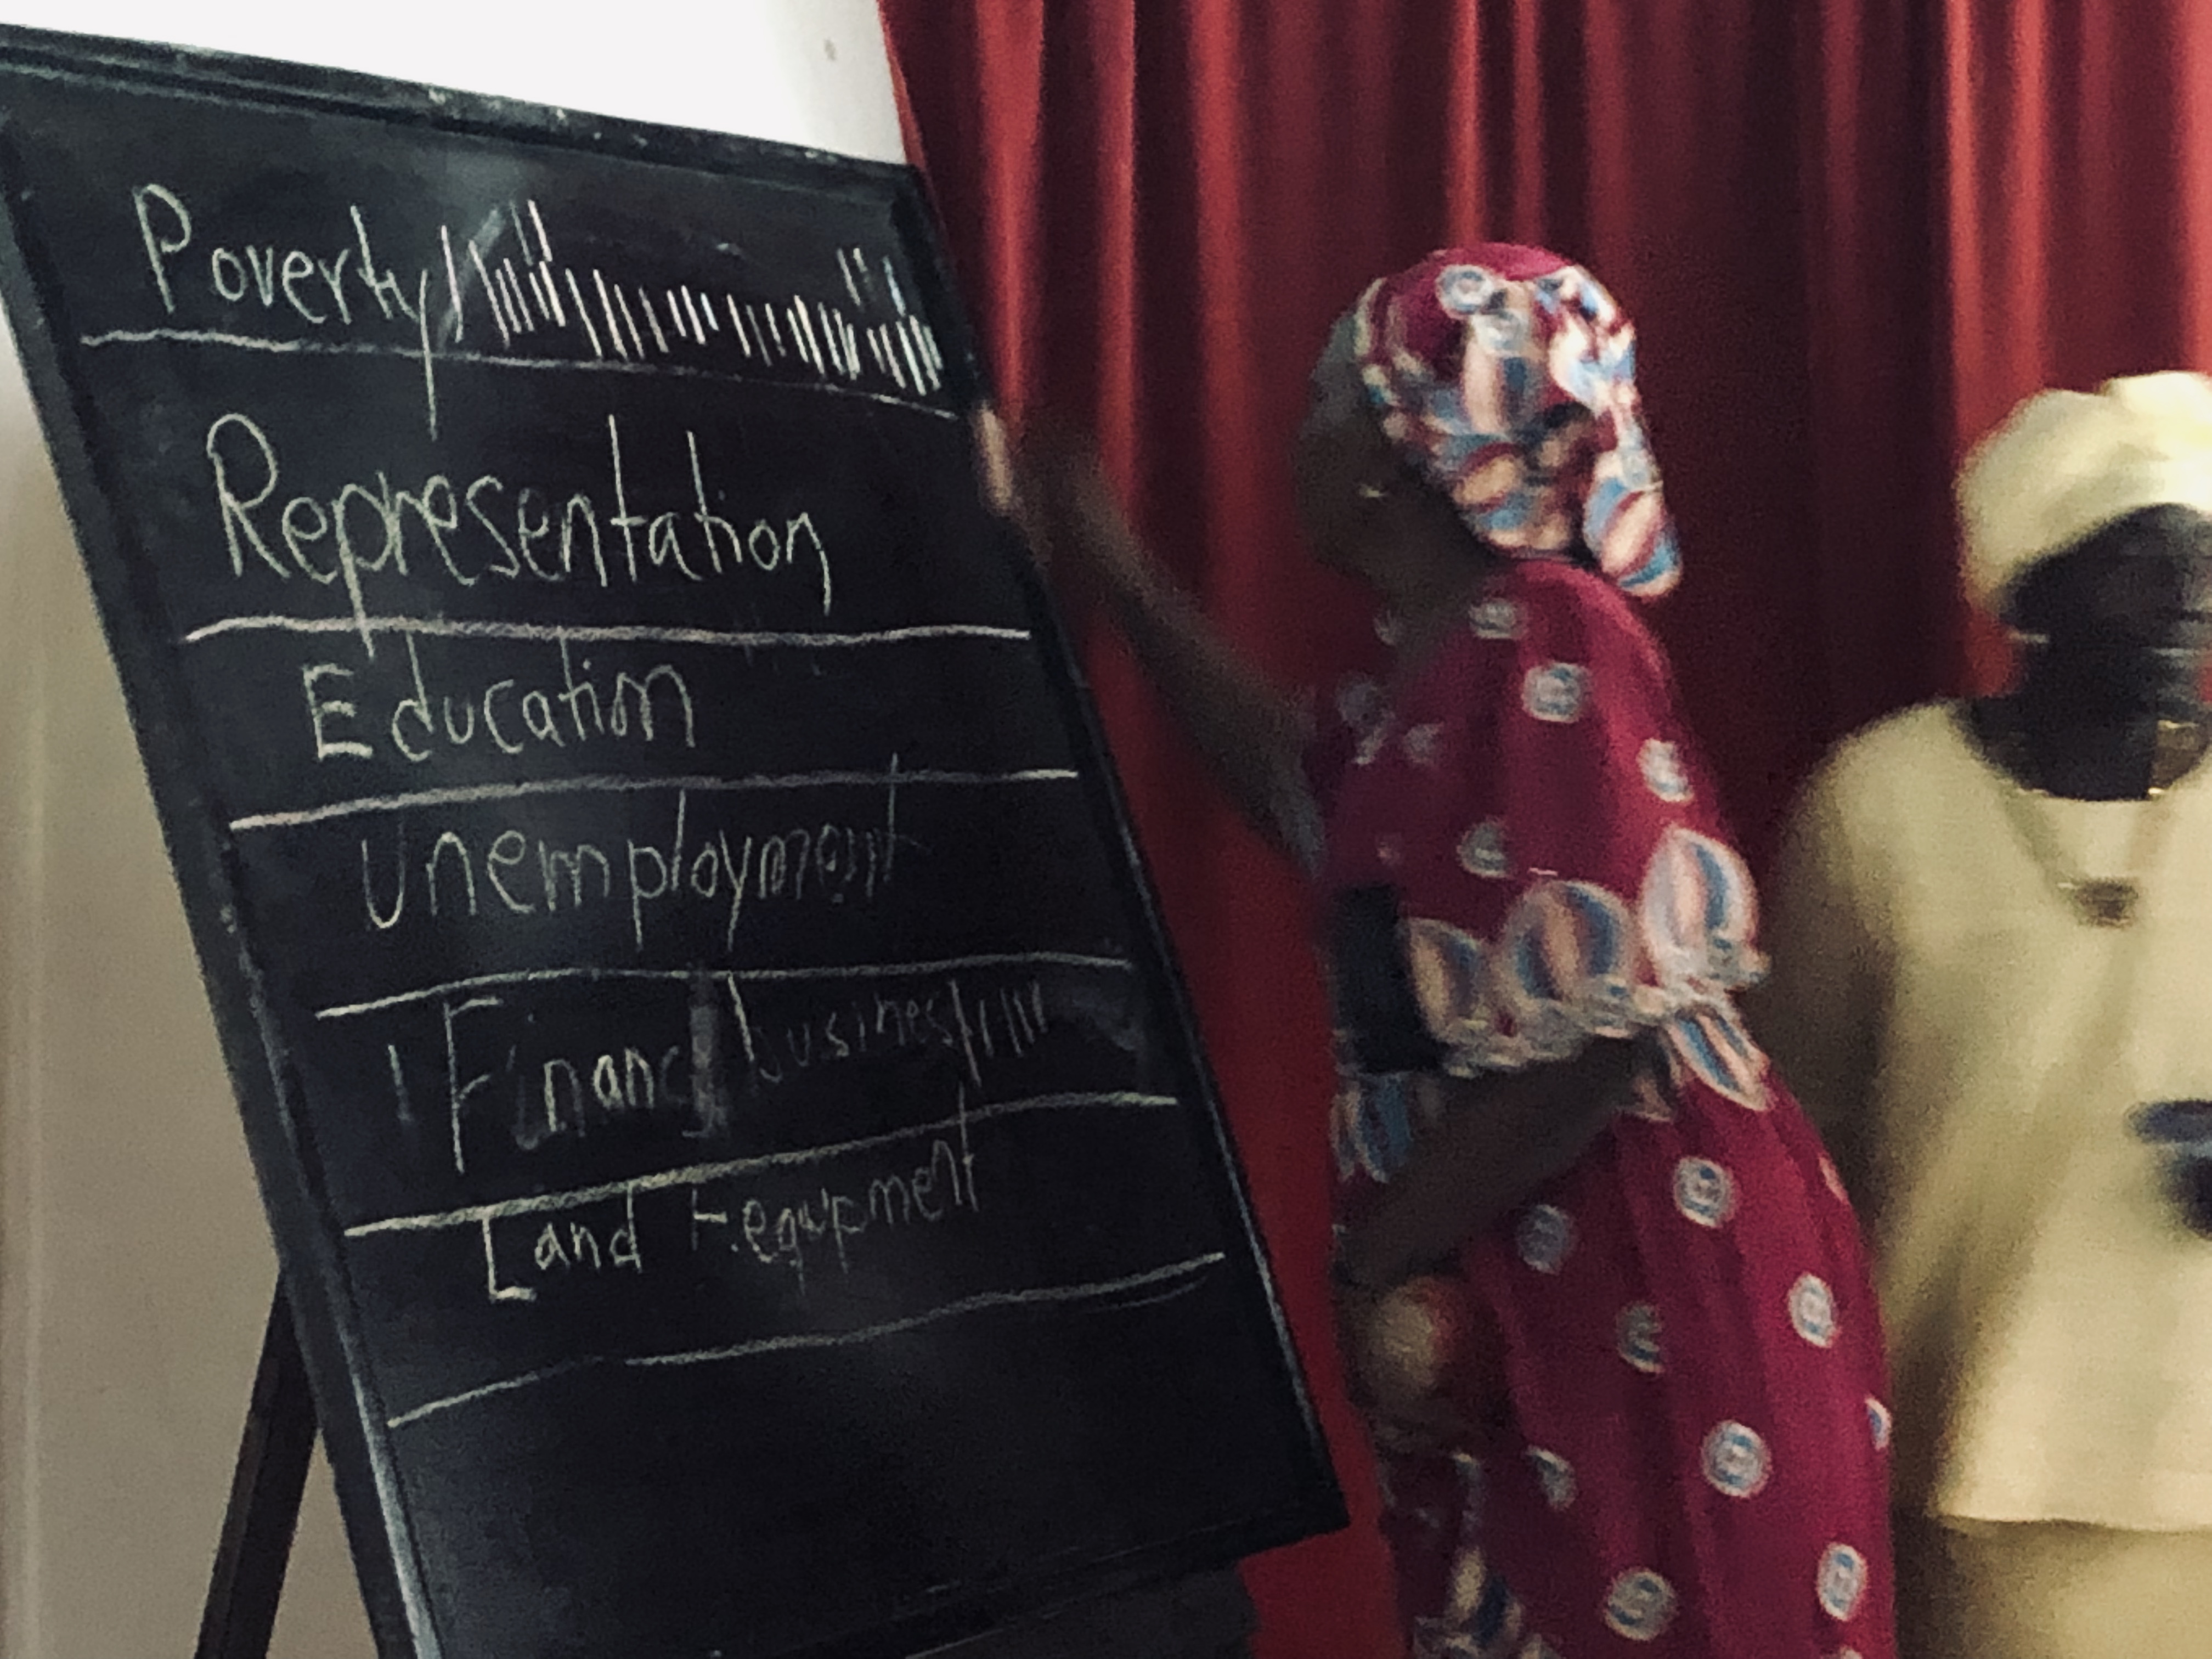 Poverty
Representation
Education
Unemployment
Financ business
Land + equpment